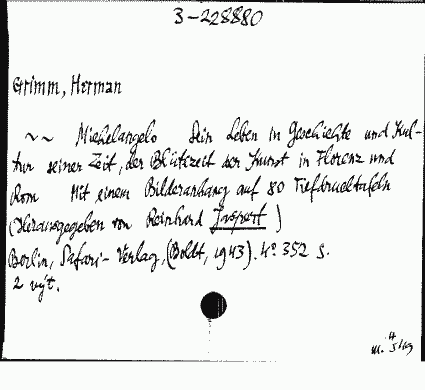 3-228880
Grimm, Herman
~~ Michelangelo Sein Leben in Geschichte und Kul-
tur seiner Zeit, der Blütezeit der Kunst in Florenz und
Rom Mit einem Bilderanhang auf 80 Tiefdrucktafeln
(Herausgegeben von Reinhard Jaspert)
Berlin, Safari-Verlag, (Boldt, 1943). 4º. 352 S.
2 výt.